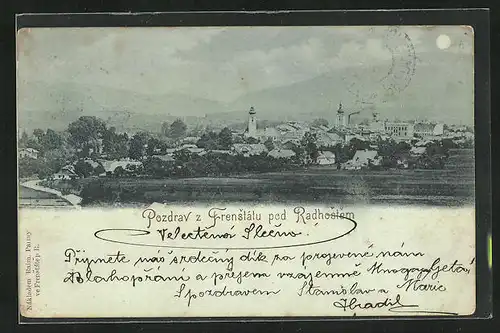 Pozdrav z Frenštátu pod Radhoštěm
Velectěná Slečno.
Přijmete náš srdečný dík za projevené nám
blahopřání a přejem vzájemně
S pozdravem Stanislav a Marie
Hradil
Nákladem Raim. Panny
ve Frenštátě p. R.